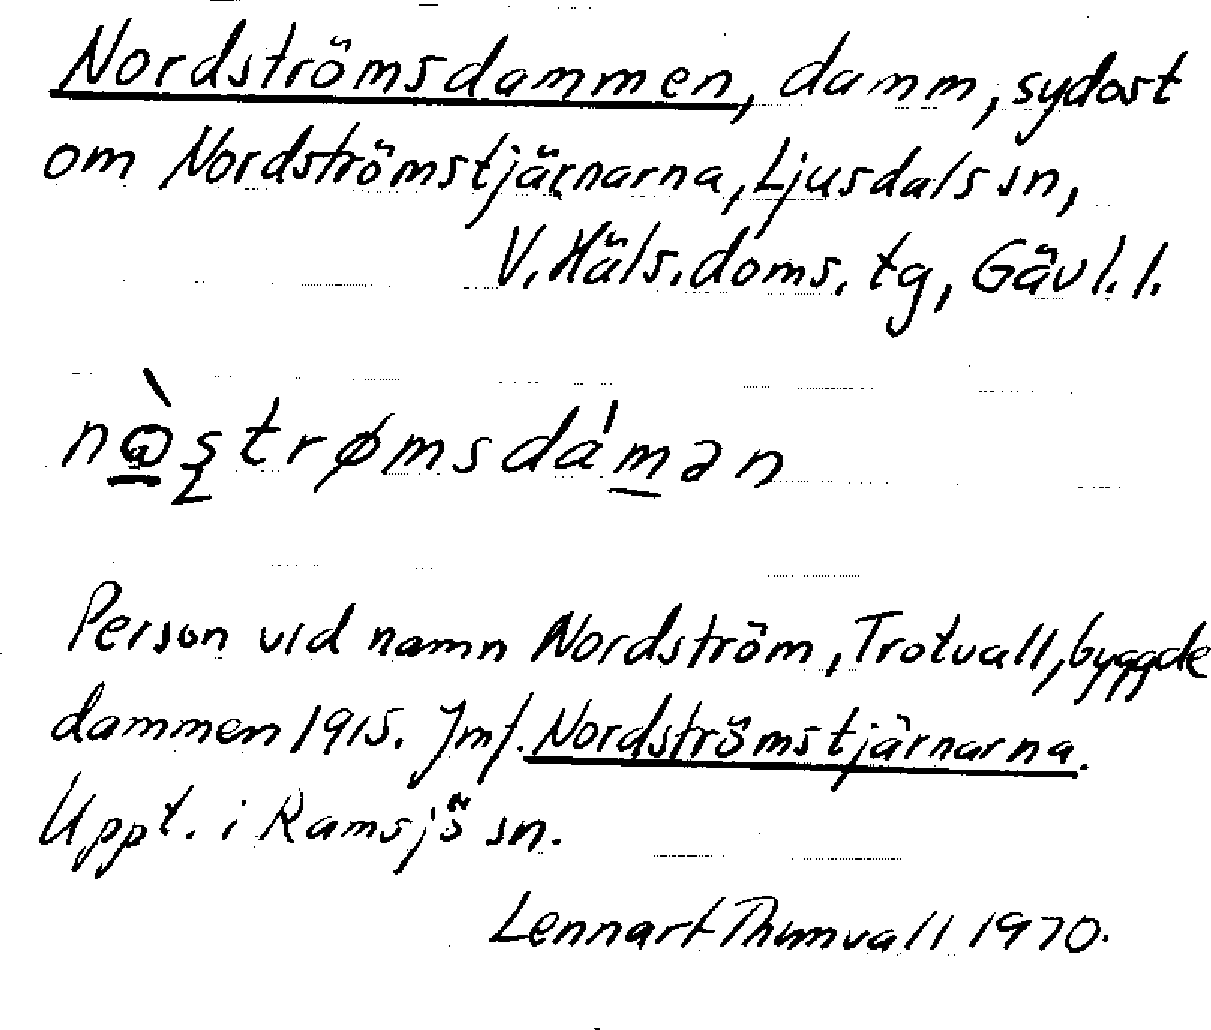 Nordströmsdammen, damm, sydost
om Nordströmstjärnarna, Ljusdals sn,
V. Häls. doms. tg, Gävl. l.
Person vid namn Nordström, Trotvall, byggde
dammen 1915. Jmf. Nordströmstjärnarna.
Uppt. i Ramsjö sn.
Lennart Thunvall 1970.